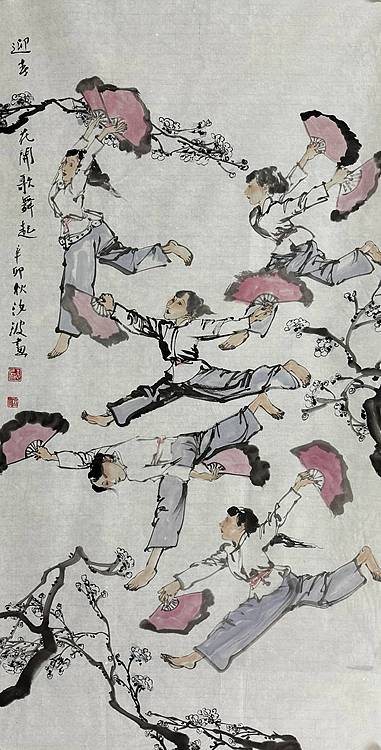 迎春花開歌舞起辛卯秋波畫